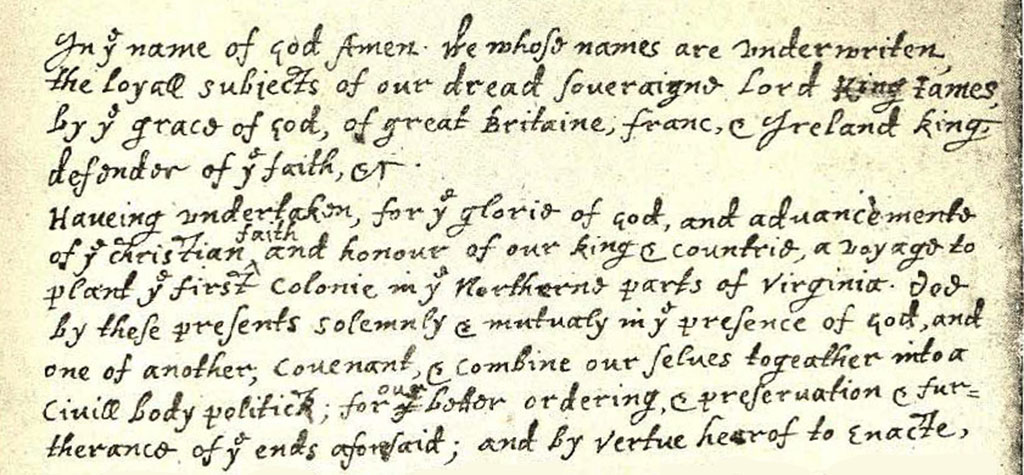 In yͤ name of god Amen. We whose names are vnderwriten,
the loyall subjects of our dread soveraigne Lord King Iames,
by yͤ grace of god, of great Britaine, franc, & Ireland king,
defender of yͤ faith, &c.
Haveing vndertaken, for yͤ glorie of god, and advancemente
of yͤ christian faith and honour of our king & countrie, a voyage to
plant yͤ first Colonie in yͤ Northerne parts of Virginia. Doe
by these presents solemnly & mutualy in yͤ presence of God, and
one of another, Covenant, & combine our selves togeather into a
Civill body politick; for our better ordering, & preservation & fur=
therance of yͤ ends aforesaid; and by vertue hearof to enacte,